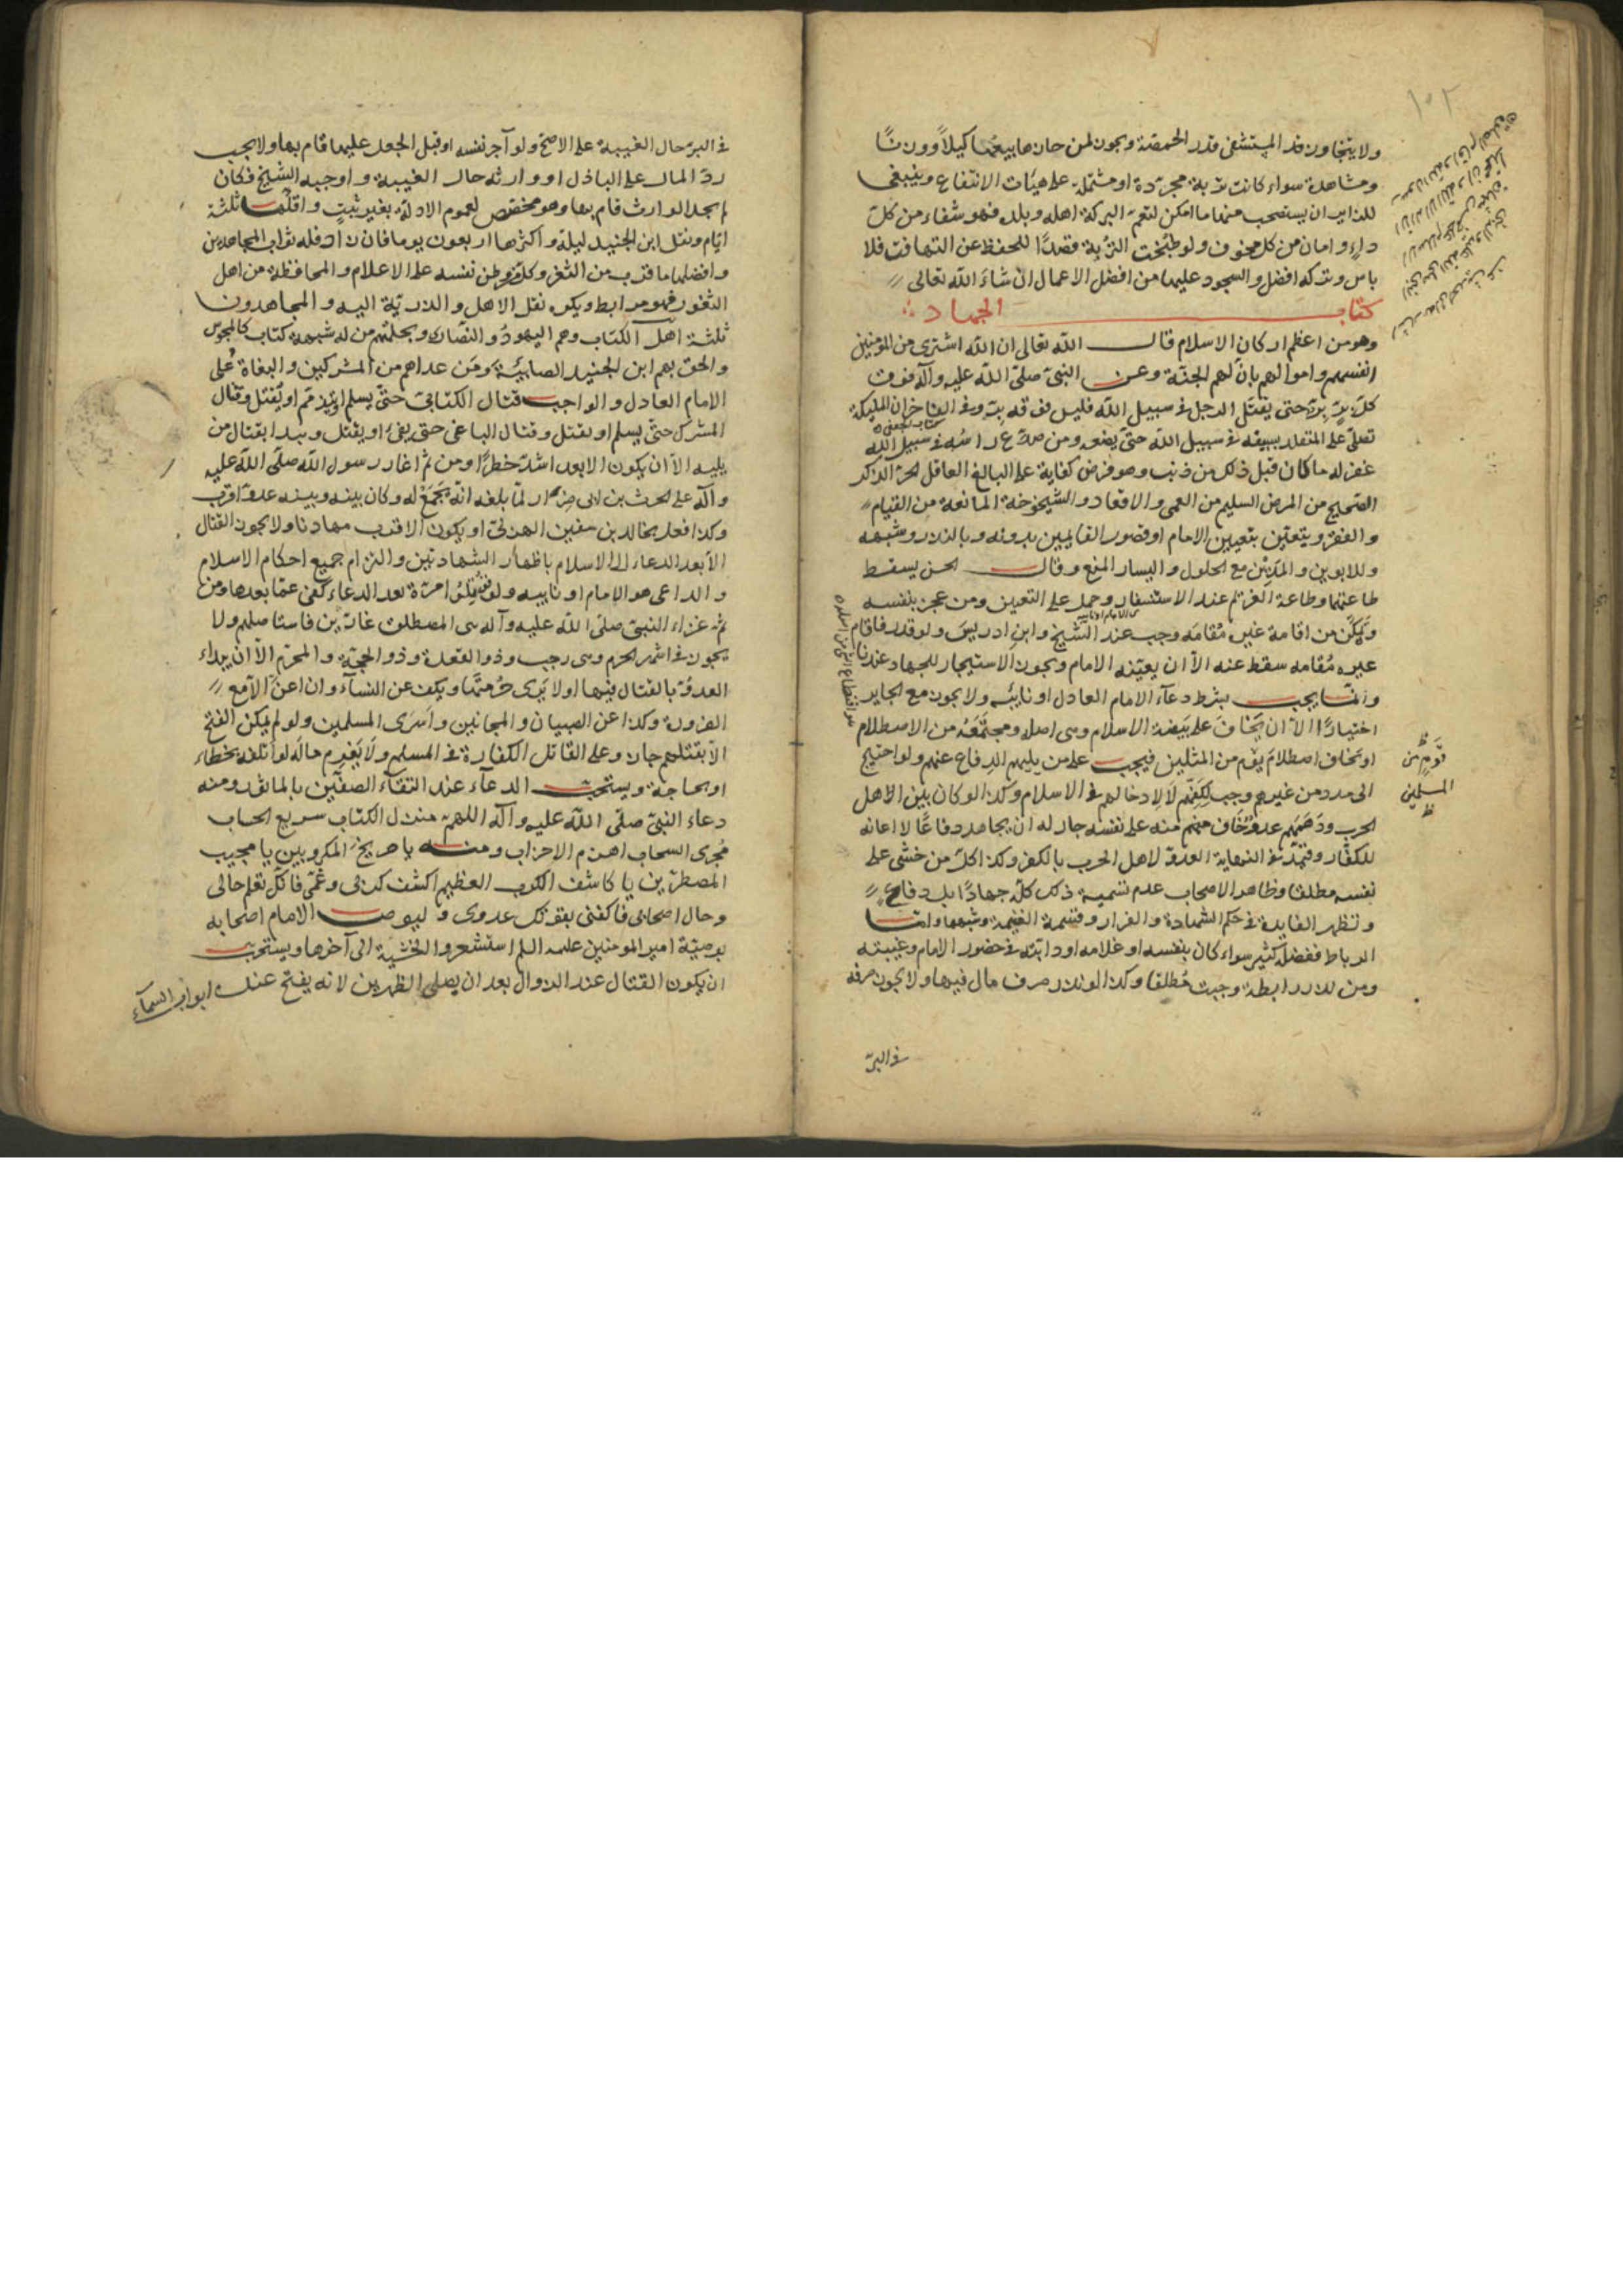 ولا يتجاوز قدر المستشفى قدر الحمصة ويجوز لمن حازها بيعها كيلا ووزنا
ومشاهدة سواء كانت تربة مجردة او مشتملة على هيئات الانتفاع وينبغي
للزاير ان يستصحب منها ما امكن لتعم البركة اهله وبلده فهو شفاء من كل
داء وامان من كل خوف ولو طبخت التربة قصدا للحفظ عن التهافت فلا
باس وتركه افضل والسجود عليها من افضل الاعمال ان شاء الله تعالى
كتاب الجهاد
وهو من اعظم اركان الاسلام قال الله تعالى ان الله اشترى من المؤمنين
انفسهم واموالهم بان لهم الجنة وعن النبي صلى الله عليه وآله فوق
كل بر بر حتى يقتل الرجل في سبيل الله فليس فوقه بر وفي الفاخر ان المليكة
تصلي على المتقلد بسيفه في سبيل الله حتى يضعه ومن صدع راسه في سبيل الله
غفر له ما كان قبل ذلك من ذنب وهو فرض كفاية على البالغ العاقل الحر الذكر
الصحيح من المرض السليم من العمى والاقعاد والشيخوخة المانعة من القيام
والفقر ويتعين بتعيين الامام او قصور القايمين بدونه وبالنذر وشبهه
وللابوين والمدين مع الحلول واليسار المنع وقال الحسن يسقط
طاعتهما وطاعة الغريم عند الاستنفار وحمل على التعيين ومن عجز بنفسه
وتمكن من اقامة غيره مقامه وجب عند الشيخ وابن ادريس ولو قدر فاقام
غيره مقامه سقط عنه الا ان يعينه الامام ويجوز الاستيجار للجهاد عندنا
وانما يجب بشرط دعاء الامام العادل او نايبه ولا يجوز مع الجاير
اختيارا الا ان يخاف على بيضة الاسلام وهي اصله ومجتمعه من الاصطلام
او يخاف اصطلام قوم من المسلمين فيجب على من يليهم الدفاع عنهم ولو احتيج
الى مدد من غيرهم وجب لكفهم لا لادخالهم في الاسلام وكذا لو كان بين اهل
الحرب ودهمهم عدو وخاف منهم منه على نفسه جاز له ان يجاهد دفاعا لا اعانة
للكفار وقيد في النهاية العدو لاهل الحرب بالكفر وكذا كل من خشي على
نفسه مطلقا وظاهر الاصحاب عدم تسمية ذلك كله جهادا بل دفاع
وتظهر الفايدة في حكم الشهادة والفرار وقسمة الغنيمة وشبهها واما
الرباط ففضله كثير سواء كان بنفسه او غلامه او دابته في حضور الامام وغيبته
ومن نذر رابطة وجبت مطلقا وكذا لو نذر صرف مال فيها ولا يجوز صرفه
في البر
قوم من
المسلمين
في البر حال الغيبة على الاصح ولو آجر نفسه او قبل الجعل عليها قام بها ولا يجب
رد المال على الباذل او وارثه حال الغيبة واوجبه الشيخ فكان
لم يجد الوارث قام بها وهو مخصص لعموم الادلة بغير ثبت واقلها ثلثة
ايام ونقل ابن الجنيد ليلة واكثرها اربعون يوما فان زاد فله ثواب المجاهدين
وافضلها ما قرب من الثغر وكل من وطن نفسه على الاعلام والمحافظة من اهل
الثغور فهو مرابط ويكره نقل الاهل والذرية اليه والمجاهدون
ثلثة اهل الكتاب وهم اليهود والنصارى وبحكمهم من له شبهة كتاب كالمجوس
والحق بهم ابن الجنيد الصابئة ومن عداهم من المشركين والبغاة على
الامام العادل والواجب قتال الكتابي حتى يسلم او يتذمم او يقتل وقتال
المشرك حتى يسلم او يقتل وقتال الباغي حتى يفيء او يقتل ويبدا بقتال من
يليه الا ان يكون الابعد اشد خطرا ومن ثم اغار رسول الله صلى الله عليه
وآله على الحرث بن ابي ضرار لما بلغه انه يجمع له وكان بينه وبينه عدو اقرب
وكذا فعل بخالد بن سفين الهذلي او يكون الاقرب مهادنا ولا يجوز القتال
الا بعد الدعاء الى الاسلام باظهار الشهادتين والتزام جميع احكام الاسلام
والداعي هو الامام او نايبه ولو قوتلوا مرة بعد الدعاء كفى عما بعدها ومن
ثم غزاء النبي صلى الله عليه وآله بني المصطلق غارين فاستاصلهم ولا
يجوز في اشهر الحرم وهي رجب وذو القعدة وذو الحجة والمحرم الا ان يبداء
العدو بالقتال فيها او لا يرى حرمتها ويكف عن النساء وان اعن الا مع
الضرورة وكذا عن الصبيان والمجانين واسرى المسلمين ولو لم يمكن الفتح
الا بقتلهم جاز وعلى القاتل الكفارة في المسلم ولا يغرم ماله لو اتلفه بخطاء
او بحاجة ويستحب الدعاء عند التقاء الصفين بالماثور ومنه
دعاء النبي صلى الله عليه وآله اللهم منزل الكتاب سريع الحساب
مجرى السحاب اهزم الاحزاب ومنه يا صريخ المكروبين يا مجيب
المضطرين يا كاشف الكرب العظيم اكشف كربى وغمى فانك تعلم حالى
وحال اصحابى فاكفنى بقوتك عدوى وليوص الامام اصحابه
بوصية امير المومنين عليه السلم استشعروا الخشية الى آخرها ويستحب
ان يكون القتال عند الزوال بعد ان يصلى الظهرين لانه يفتح عنده ابواب السماء